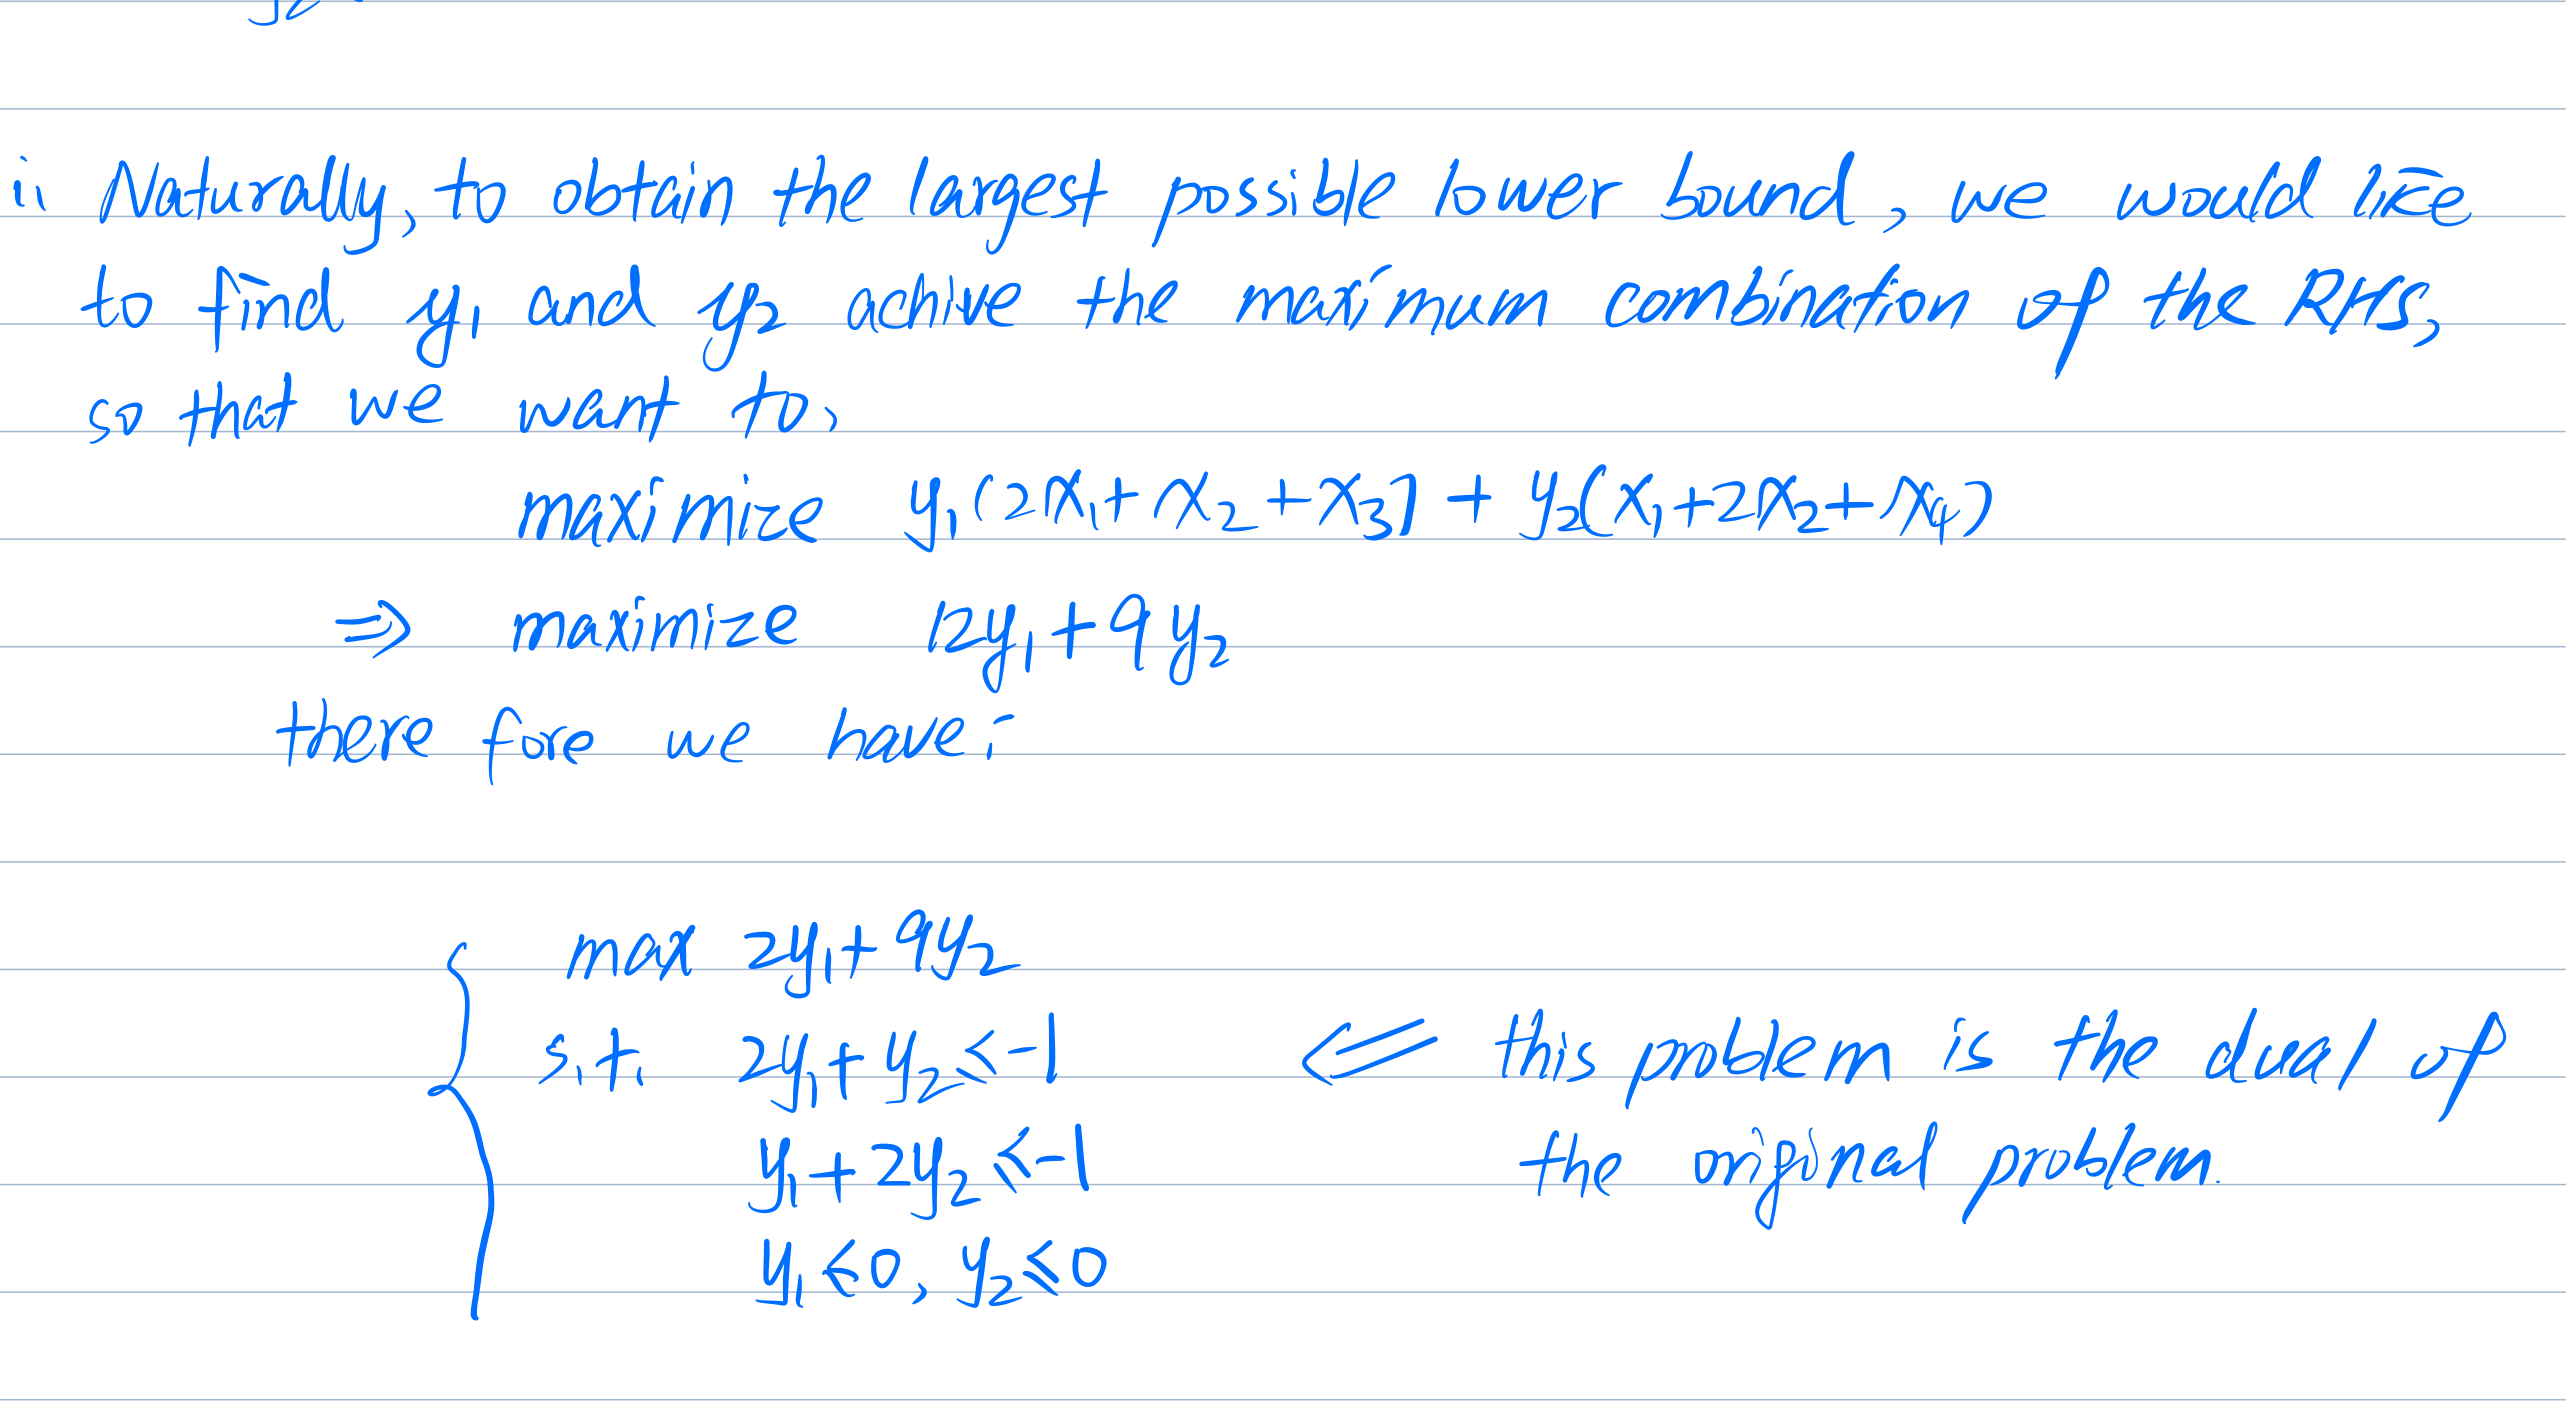 y2
ii Naturally, to obtain the largest possible lower bound, we would like
to find y1 and y2 achive the maximum combination of the RHS,
so that we want to,
maximize y1(2x1+x2+x3) + y2(x1+2x2+x4)
⇒ maximize 12y1+9y2
there fore we have:
max 2y1+9y2
s.t. 2y1+y2≤-1 ⇐ this problem is the dual of
y1+2y2≤-1 the original problem.
y1≤0, y2≤0